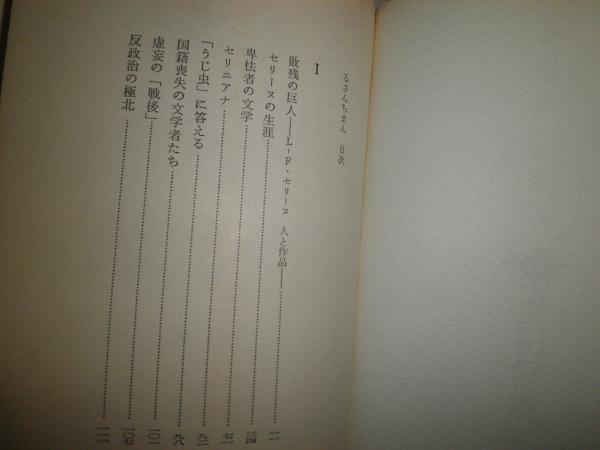 るさんちまん 目次
I
敗残の巨人――L‐F・セリーヌ 人と作品――……一一
セリーヌの生涯……三四
卑怯者の文学……七一
セリニアナ……九二
「うじ虫」に答える……九八
国籍喪失の文学者たち……一〇一
虚妄の「戦後」……一〇七
反政治の極北……一一一